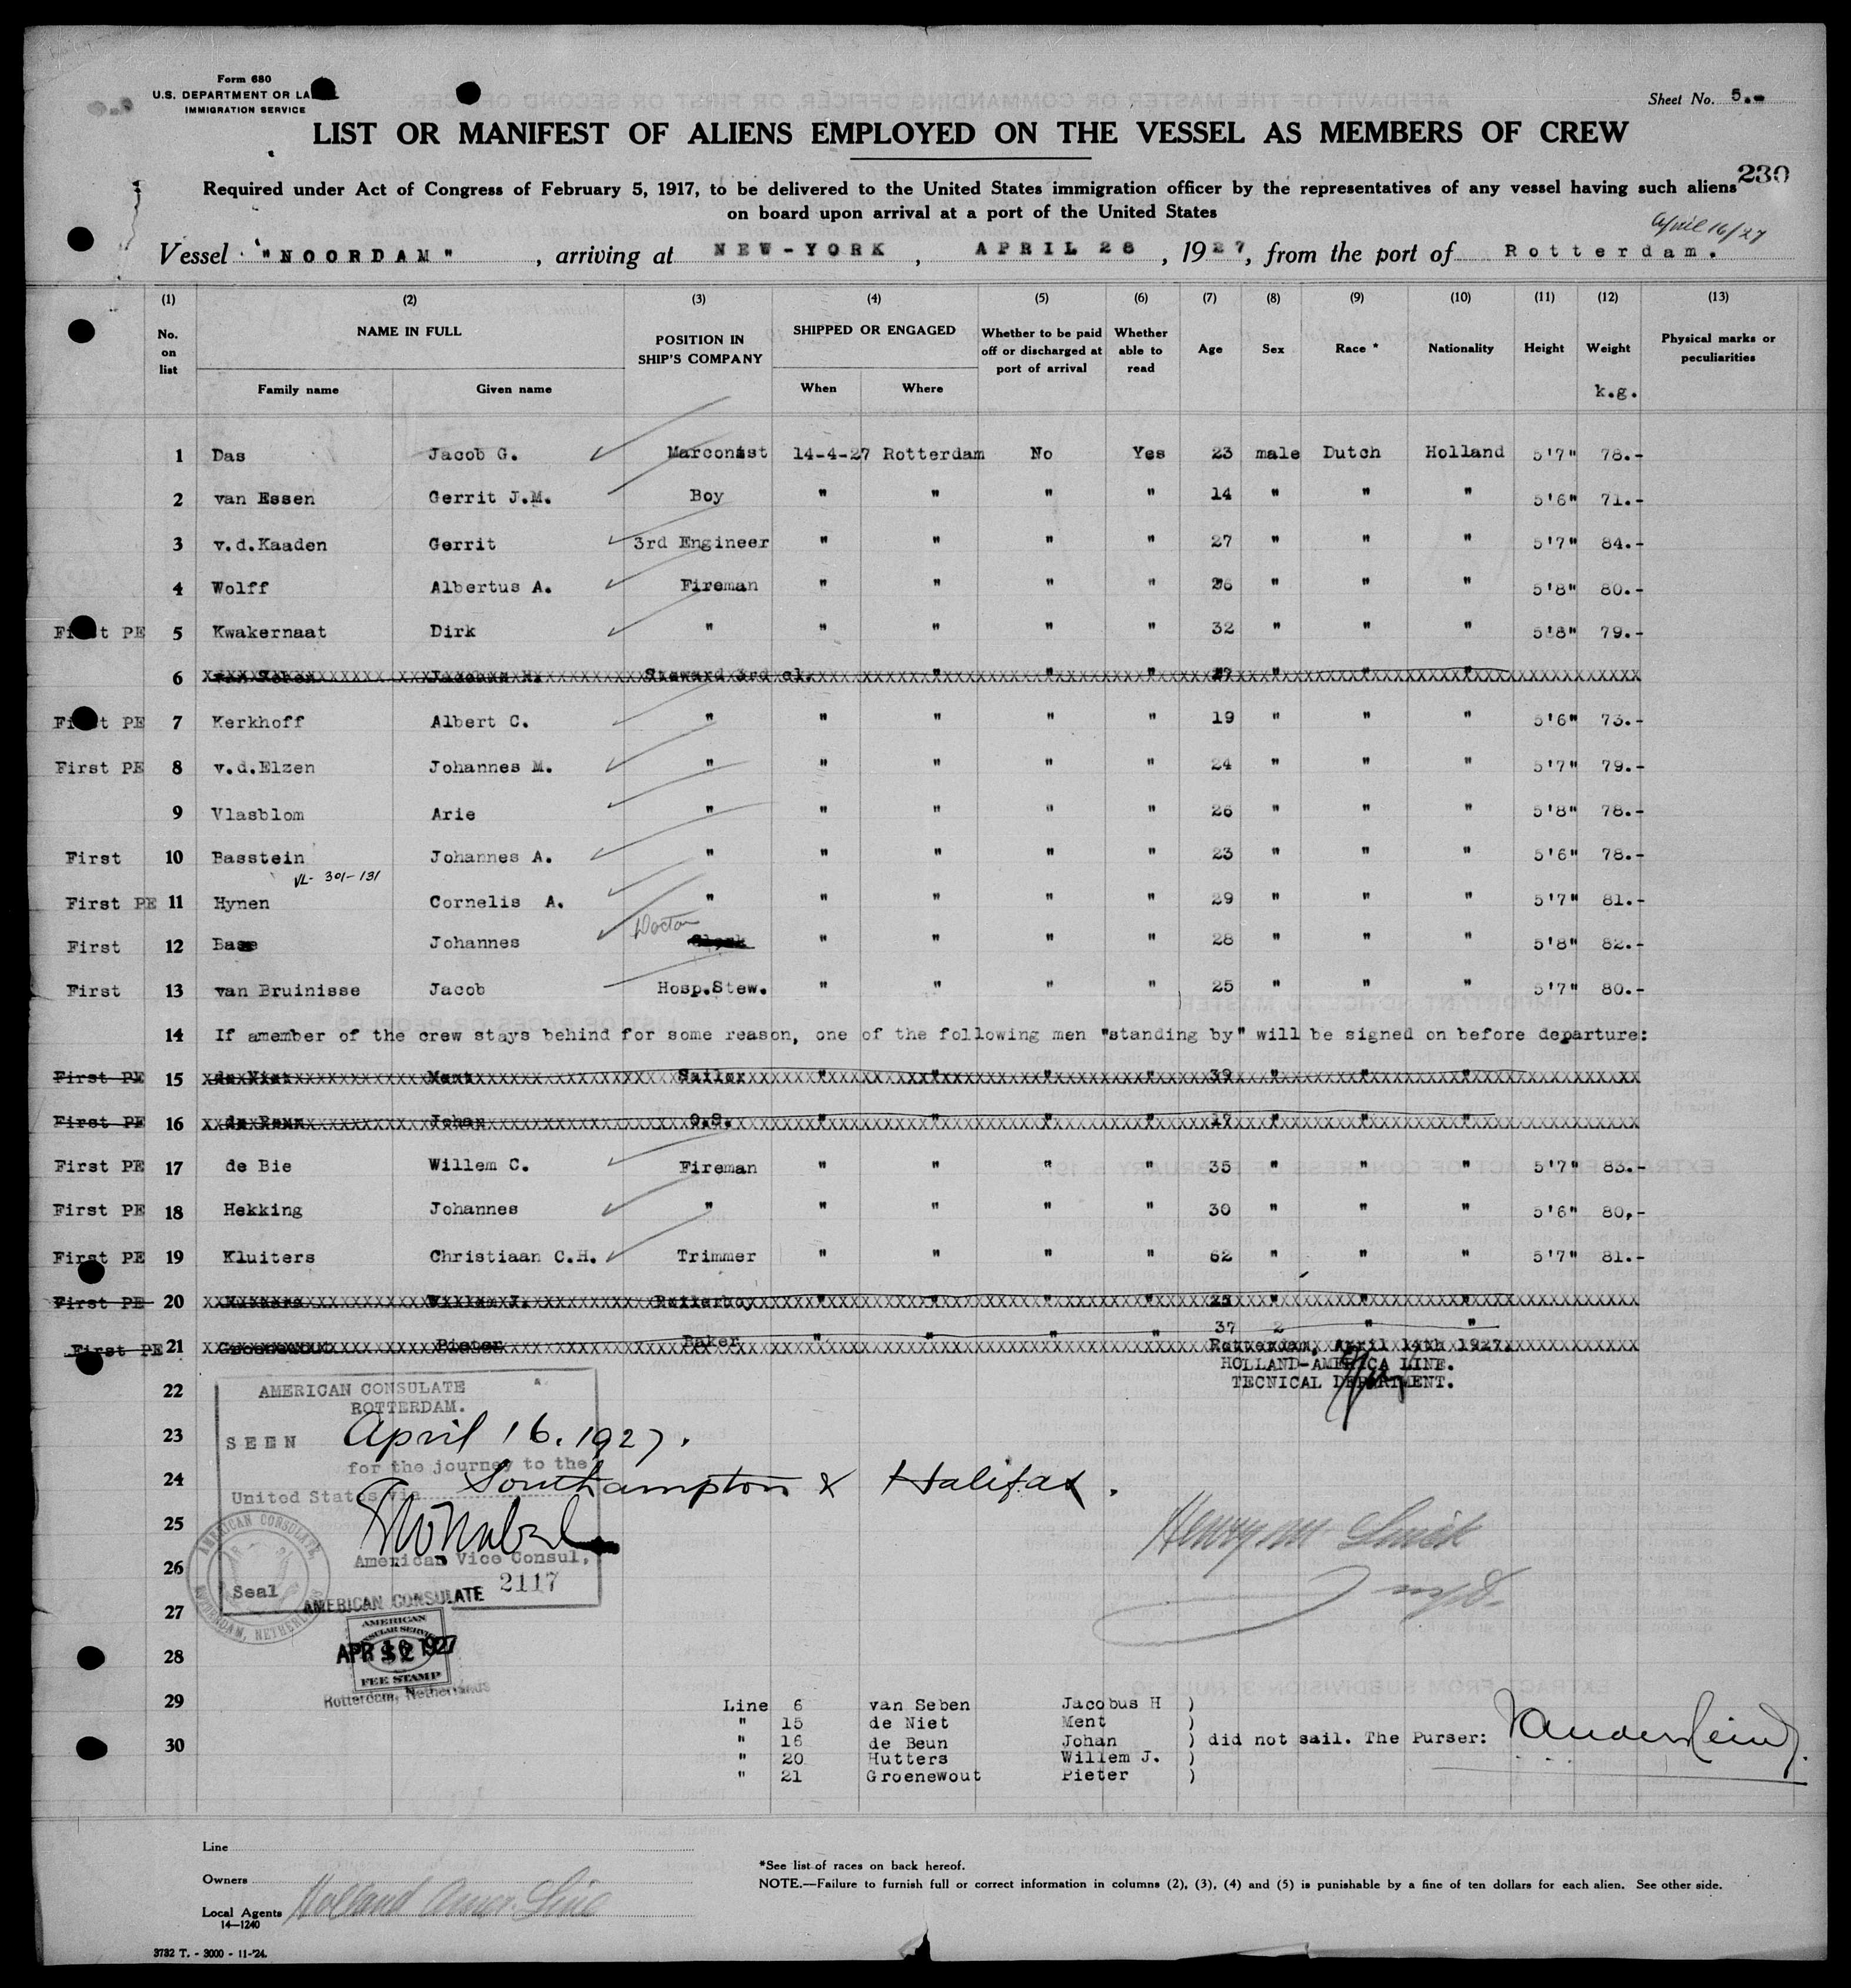 Form 680
U.S. DEPARTMENT OR LA
IMMIGRATION SERVICE
Sheet No. 5.-
LIST OR MANIFEST OF ALIENS EMPLOYED ON THE VESSEL AS MEMBERS OF CREW
230
Required under Act of Congress of February 5, 1917, to be delivered to the United States immigration officer by the representatives of any vessel having such aliens
on board upon arrival at a port of the United States
April 16/27
Vessel "NOORDAM", arriving at NEW-YORK, APRIL 28, 1927, from the port of Rotterdam.
(1) (2) (3) (4) (5) (6) (7) (8) (9) (10) (11) (12) (13)
No. on list NAME IN FULL POSITION IN SHIP'S COMPANY SHIPPED OR ENGAGED Whether to be paid off or discharged at port of arrival Whether able to read Age Sex Race * Nationality Height Weight Physical marks or peculiarities
Family name Given name When Where k.g.
1 Das Jacob G. Marconist 14-4-27 Rotterdam No Yes 23 male Dutch Holland 5'7" 78.-
2 van Essen Gerrit J.M. Boy " " " " 14 " " " 5'6" 71.-
3 v.d.Kaaden Gerrit 3rd Engineer " " " " 27 " " " 5'7" 84.-
4 Wolff Albertus A. Fireman " " " " 26 " " " 5'8" 80.-
First PE 5 Kwakernaat Dirk " " " " " 32 " " " 5'8" 79.-
6 van Seben Jacobus H. Steward 3rd cl. " " " " " "
First PE 7 Kerkhoff Albert C. " " " " " 19 " " " 5'6" 73.-
First PE 8 v.d.Elzen Johannes M. " " " " " 24 " " " 5'7" 79.-
9 Vlasblom Arie " " " " " 26 " " " 5'8" 78.-
First 10 Basstein Johannes A. " " " " " 23 " " " 5'6" 78.-
VL- 301-131
First PE 11 Hynen Cornelis A. " " " " " 29 " " " 5'7" 81.-
Doctor
First 12 Johannes Clerk " " " " 28 " " " 5'8" 82.-
First 13 van Bruinisse Jacob Hosp.Stew. " " " " 25 " " " 5'7" 80.-
14 If amember of the crew stays behind for some reason, one of the following men "standing by" will be signed on before departure:
First PE 15 de Niet Ment Sailor " " " " 39 " " "
First PE 16 de Beun Johan O.S. " " " " 17 " " "
First PE 17 de Bie Willem C. Fireman " " " " 35 " " " 5'7" 83.-
First PE 18 Hekking Johannes " " " " " 30 " " " 5'6" 80,-
First PE 19 Kluiters Christiaan C.H. Trimmer " " " " 62 " " " 5'7" 81.-
First PE 20 Hutters Willem J. " " " " 25 " " "
First PE 21 Groenewout Pieter Baker " " " " 37 2 " "
Rotterdam, April 14th 1927.
HOLLAND-AMERICA LINE.
TECNICAL DEPARTMENT.
22
AMERICAN CONSULATE
ROTTERDAM.
23
SEEN April 16. 1927.
for the journey to the
24
United States via Southampton & Halifax.
25
American Vice Consul.
Henry M
26
Seal 2117
AMERICAN CONSULATE, ROTTERDAM, NETHERLANDS
27
AMERICAN CONSULATE
AMERICAN
CONSULAR SERVICE
28
APR 16 1927
$2
FEE STAMP
Rotterdam, Netherlands
29
30
Line 6 van Seben Jacobus H )
" 15 de Niet Ment )
" 16 de Beun Johan ) did not sail. The Purser:
" 20 Hutters Willem J. )
" 21 Groenewout Pieter )
Line
Owners
Local Agents Holland Amer. Line
14—1240
*See list of races on back hereof.
NOTE.—Failure to furnish full or correct information in columns (2), (3), (4) and (5) is punishable by a fine of ten dollars for each alien. See other side.
3732 T. - 3000 - 11-'24.